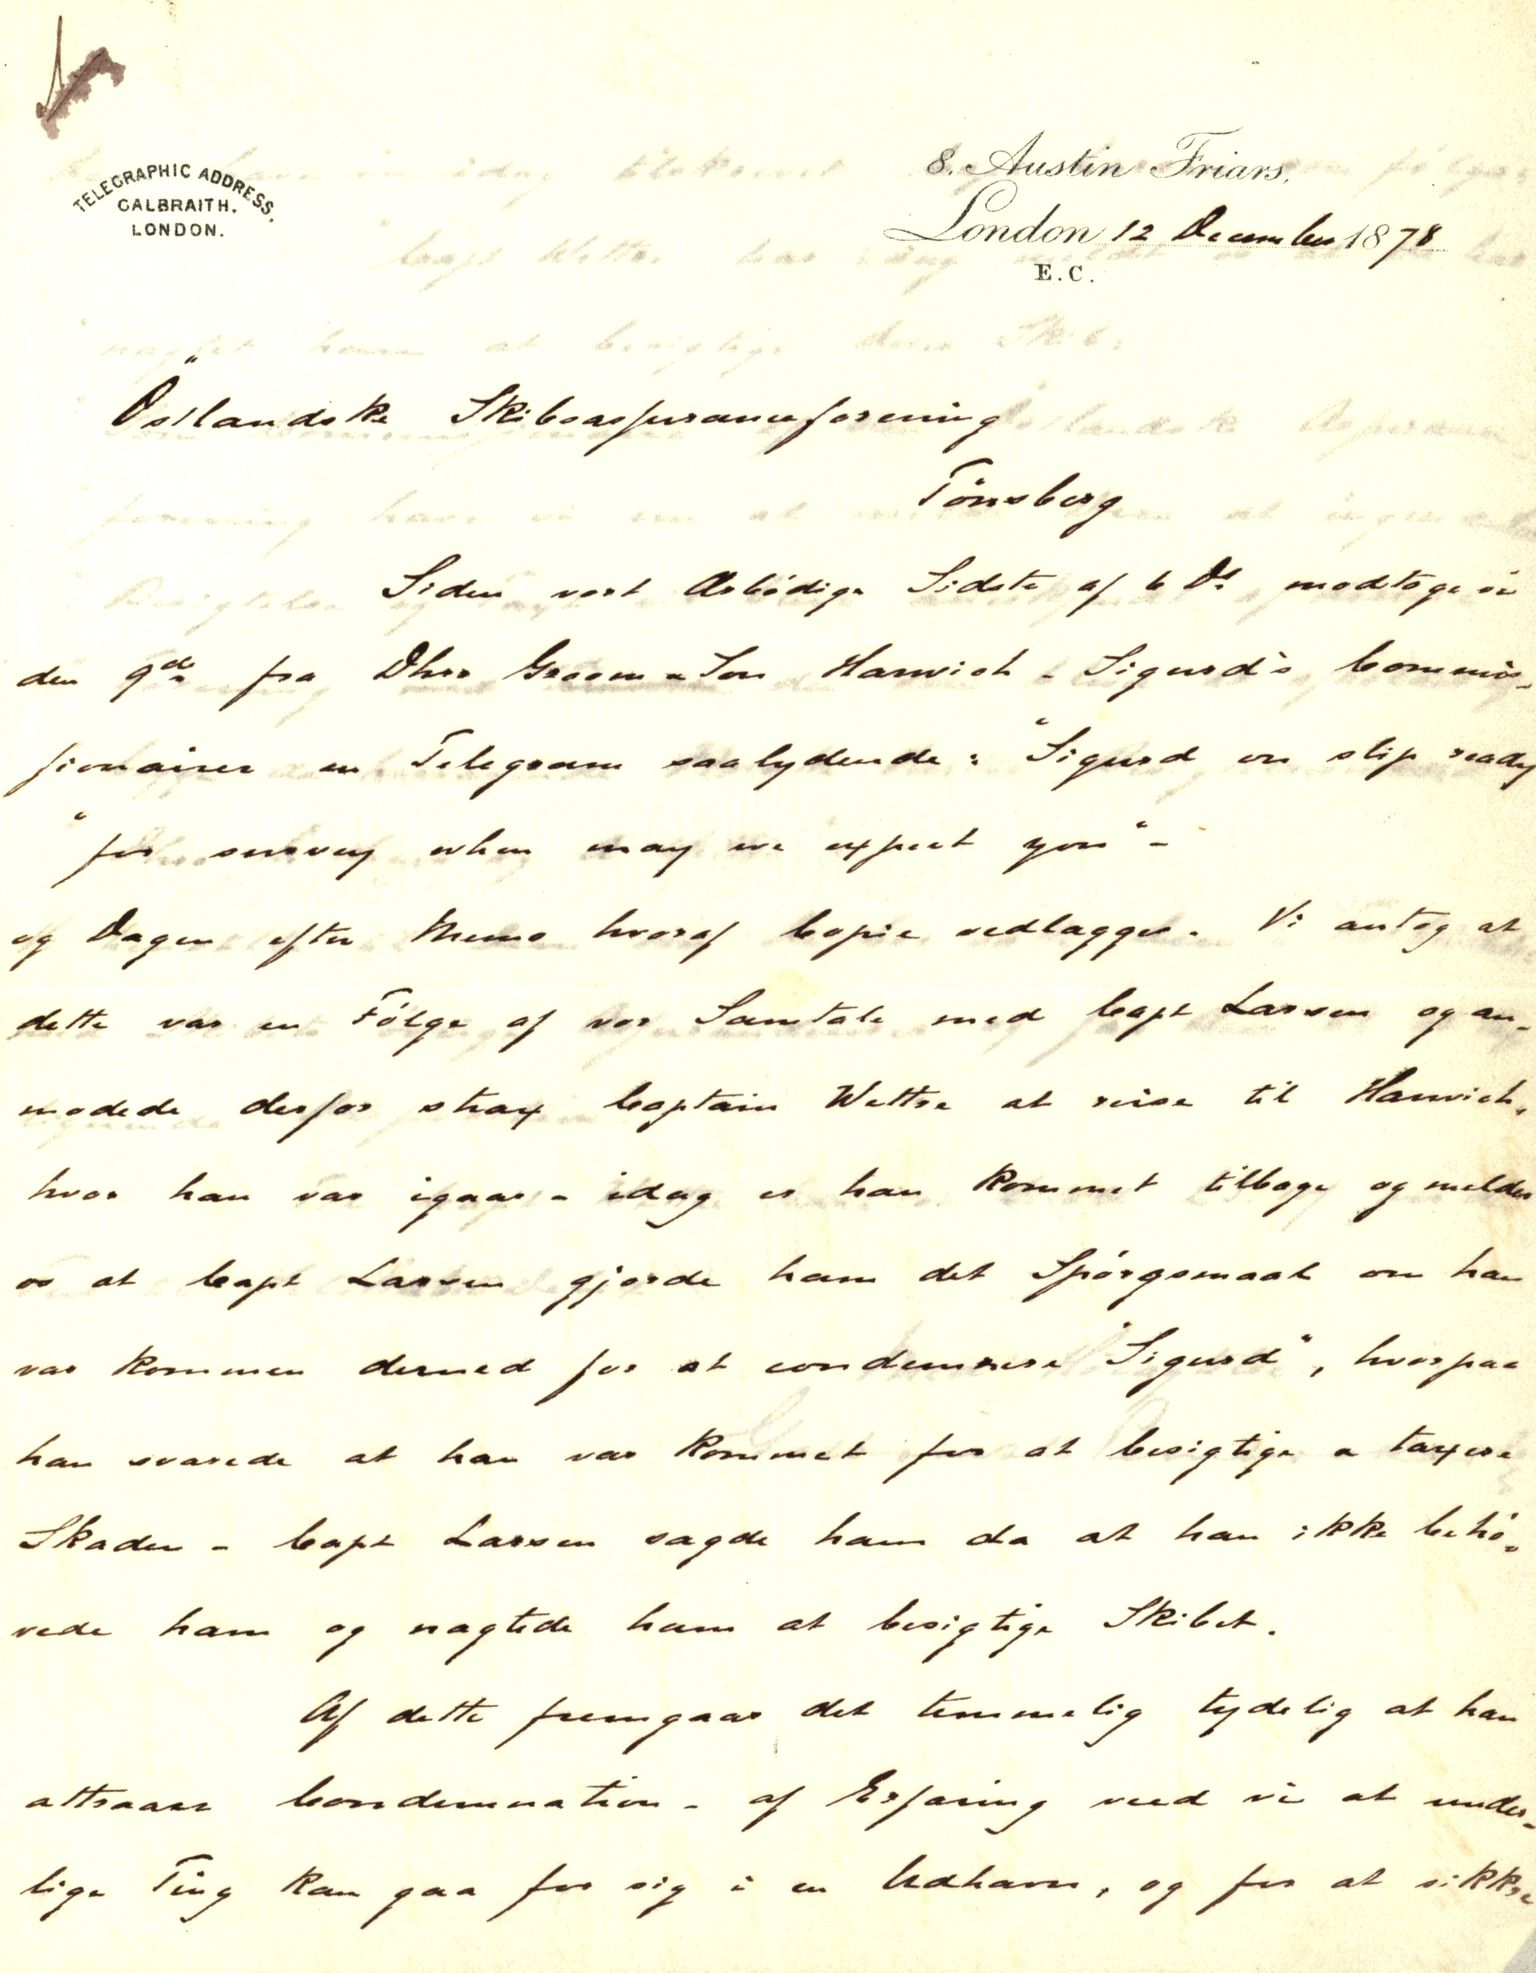 TELEGRAPHIC ADDRESS.
GALBRAITH.
LONDON.
8. Austin Friars.
London 12 December 1878
E.C.
Östlandske Skibsassuranceforening
Tönsberg
Siden vort Ærbödige Sidste af 6 Ds modtoge vi
den 9de fra Dhrr Groom & Son Harwich - Sigurd's Commis-
sionairer en Telegram saalydende: "Sigurd on slip ready
"for survey when may we expect you" -
og Dagen efter Memo hvoraf Copie vedlægges. Vi antog at
dette var en Fölge af vor Samtale med Capt Larsen og an-
modede derfor strax Captain Wettre at reise til Harwich,
hvor han var igaar - idag er han kommet tilbage og melder
os at Capt Larsen gjorde ham det Spörgsmaal om han
var kommen derned for at condemnere "Sigurd", hvorpaa
han svarede at han var kommet for at besigtige & taxere
Skaden - Capt Larsen sagde ham da at han ikke behö-
vede ham og nægtede ham at besigtige Skibet.
Af dette fremgaar det temmelig tydelig at han
attraaer Condemnation - af Erfaring veed vi at under-
lige Ting kan gaa for sig i en Udhavn, og for at sikkre